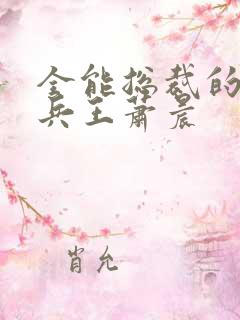 全能总裁的
兵王萧晨
肖允